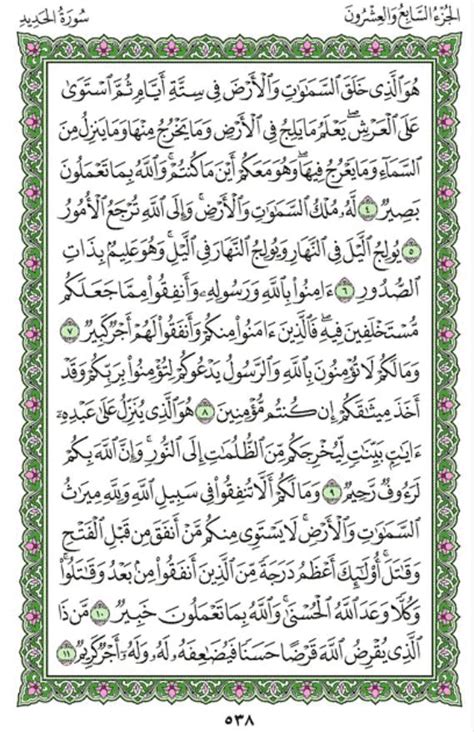 الجزء السابع والعشرون
سورة الحديد
هُوَ ٱلَّذِي خَلَقَ ٱلسَّمَٰوَٰتِ وَٱلْأَرْضَ فِي سِتَّةِ أَيَّامٍ ثُمَّ ٱسْتَوَىٰ
عَلَى ٱلْعَرْشِ ۚ يَعْلَمُ مَا يَلِجُ فِي ٱلْأَرْضِ وَمَا يَخْرُجُ مِنْهَا وَمَا يَنزِلُ مِنَ
ٱلسَّمَآءِ وَمَا يَعْرُجُ فِيهَا ۖ وَهُوَ مَعَكُمْ أَيْنَ مَا كُنتُمْ ۚ وَٱللَّهُ بِمَا تَعْمَلُونَ
بَصِيرٌ ٤ لَّهُۥ مُلْكُ ٱلسَّمَٰوَٰتِ وَٱلْأَرْضِ ۚ وَإِلَى ٱللَّهِ تُرْجَعُ ٱلْأُمُورُ
٥ يُولِجُ ٱلَّيْلَ فِي ٱلنَّهَارِ وَيُولِجُ ٱلنَّهَارَ فِي ٱلَّيْلِ ۚ وَهُوَ عَلِيمٌۢ بِذَاتِ
ٱلصُّدُورِ ٦ ءَامِنُوا۟ بِٱللَّهِ وَرَسُولِهِۦ وَأَنفِقُوا۟ مِمَّا جَعَلَكُم
مُّسْتَخْلَفِينَ فِيهِ ۖ فَٱلَّذِينَ ءَامَنُوا۟ مِنكُمْ وَأَنفَقُوا۟ لَهُمْ أَجْرٌ كَبِيرٌ ٧
وَمَا لَكُمْ لَا تُؤْمِنُونَ بِٱللَّهِ ۙ وَٱلرَّسُولُ يَدْعُوكُمْ لِتُؤْمِنُوا۟ بِرَبِّكُمْ وَقَدْ
أَخَذَ مِيثَٰقَكُمْ إِن كُنتُم مُّؤْمِنِينَ ٨ هُوَ ٱلَّذِي يُنَزِّلُ عَلَىٰ عَبْدِهِۦٓ
ءَايَٰتٍۭ بَيِّنَٰتٍ لِّيُخْرِجَكُم مِّنَ ٱلظُّلُمَٰتِ إِلَى ٱلنُّورِ ۚ وَإِنَّ ٱللَّهَ بِكُمْ
لَرَءُوفٌ رَّحِيمٌ ٩ وَمَا لَكُمْ أَلَّا تُنفِقُوا۟ فِي سَبِيلِ ٱللَّهِ وَلِلَّهِ مِيرَٰثُ
ٱلسَّمَٰوَٰتِ وَٱلْأَرْضِ ۚ لَا يَسْتَوِي مِنكُم مَّنْ أَنفَقَ مِن قَبْلِ ٱلْفَتْحِ
وَقَٰتَلَ ۚ أُو۟لَٰٓئِكَ أَعْظَمُ دَرَجَةً مِّنَ ٱلَّذِينَ أَنفَقُوا۟ مِنۢ بَعْدُ وَقَٰتَلُوا۟ ۚ
وَكُلًّا وَعَدَ ٱللَّهُ ٱلْحُسْنَىٰ ۚ وَٱللَّهُ بِمَا تَعْمَلُونَ خَبِيرٌ ١٠ مَّن ذَا
ٱلَّذِي يُقْرِضُ ٱللَّهَ قَرْضًا حَسَنًا فَيُضَٰعِفَهُۥ لَهُۥ وَلَهُۥٓ أَجْرٌ كَرِيمٌ ١١
٥٣٨